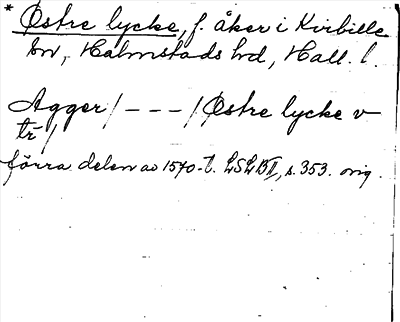 * Østre lycke, f. åker i Kvibille
sn, Halmstads hd, Hall. l.
Agger/ - - - / Østre lycke v
tr/
förra delen av 1570-t. LSLBII, s. 353. orig.